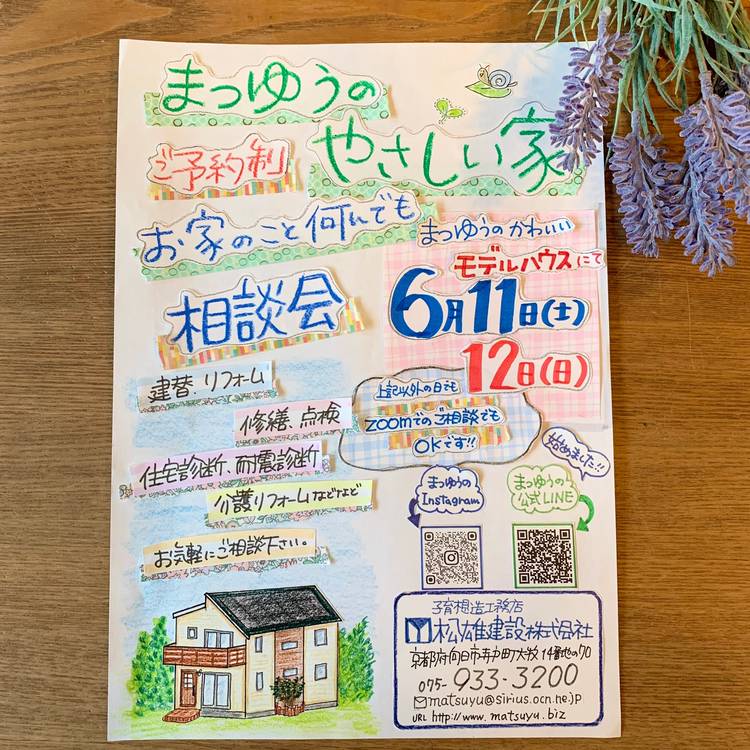 まつゆうの
やさしい家
ご予約制
お家のこと何んでも
相談会
まつゆうのかわいい
モデルハウスにて
6月11日(土)
12日(日)
上記以外の日でも
zoomでのご相談でも
OKです!!
建替、リフォーム
修繕、点検
住宅診断、耐震診断
介護リフォームなどなど
お気軽にご相談下さい。
まつゆうの
Instagram
始めました!!
まつゆうの
公式LINE
子育想造工務店
松雄建設株式会社
京都府向日市寺戸町大牧14番地の70
075-933-3200
matsuyu@sirius.ocn.ne.jp
URL http://www.matsuyu.biz